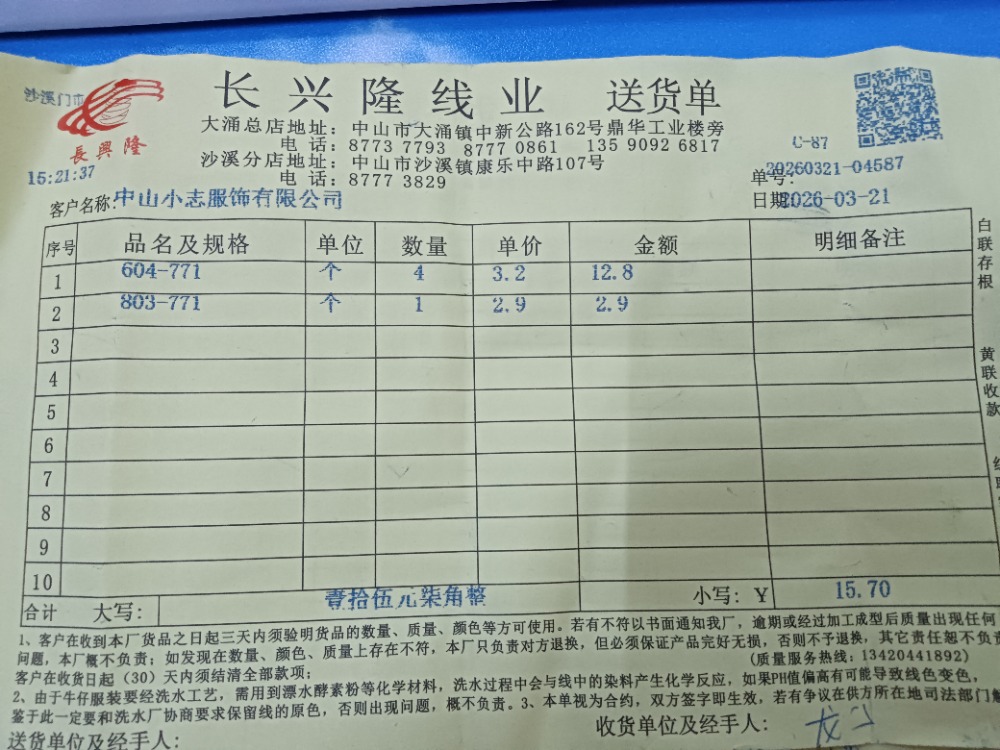 沙溪门市
長興隆
长兴隆线业 送货单
大涌总店地址：中山市大涌镇中新公路162号鼎华工业楼旁
电话：8773 7793 8771 0861 135 9092 6817
沙溪分店地址：中山市沙溪镇康乐中路107号
电话：8777 3829
C-87
15:21:37
单号：20260321-04587
客户名称：中山小志服饰有限公司
日期2026-03-21
序号 品名及规格 单位 数量 单价 金额 明细备注
1 604-771 个 4 3.2 12.8
2 803-771 个 1 2.9 2.9
3
4
5
6
7
8
9
10
合计 大写：壹拾伍元柒角整 小写：Y 15.70
白联存根
黄联收款
1、客户在收到本厂货品之日起三天内须验明货品的数量、质量、颜色等方可使用。若有不符以书面通知我厂，逾期或经过加工成型后质量出现任何
问题，本厂概不负责；如发现在数量、颜色、质量上存在不符，本厂只负责对方退换，但必须保证产品完好无损，否则不予退换，其它责任恕不负责
客户在收货日起（30）天内须结清全部款项；
(质量服务热线：13420441892)
2、由于牛仔服装要经洗水工艺，需用到漂水酵素粉等化学材料，洗水过程中会与线中的染料产生化学反应，如果PH值偏高有可能导致线色变色，
鉴于此一定要和洗水厂协商要求保留线的原色，否则出现问题，概不负责。3、本单视为合约，双方签字即生效，若有争议在供方所在地司法部门
送货单位及经手人：
收货单位及经手人：